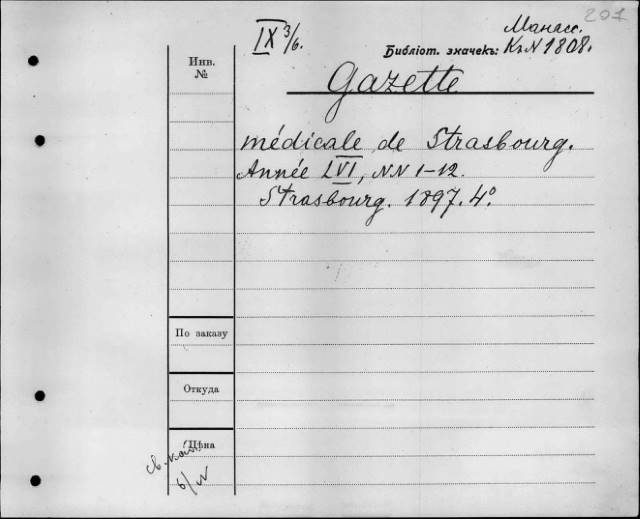 201
IX 3/6.
Манасс.
Библіот. значекъ: К. N 1808.
Инв.
№
Gazette
médicale de Strasbourg.
Année LVI, NN 1-12.
Strasbourg. 1897. 4°.
По заказу
Откуда
Цѣна
б/N